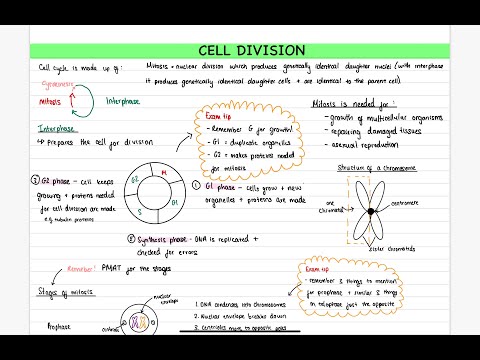 CELL DIVISION
Cell cycle is made up of:
Mitosis = nuclear division which produces genetically identical daughter nuclei (with interphase
it produces genetically identical daughter cells + are identical to the parent cell).
Cytokinesis
Mitosis
Interphase
Interphase
↳ Prepares the cell for division
Exam tip
- Remember G for growth!
- G1 = duplicate organelles
- G2 = makes proteins needed
for mitosis
Mitosis is needed for:
- growth of multicellular organisms
- repairing damaged tissues
- asexual reproduction
③ G2 phase - cell keeps
growing + proteins needed
for cell division are made
e.g. tubulin proteins
G2
M
S
G1
① G1 phase - cells grow + new
organelles + proteins are made
② Synthesis phase - DNA is replicated +
checked for errors
Structure of a chromosome
one
chromatid
centromere
sister chromatids
Remember! PMAT for the stages
Stages of mitosis
Exam tip
- remember 3 things to mention
for prophase + similar 3 things
in telophase just the opposite
nuclear
envelope
Prophase
1. DNA condenses into chromosomes
2. Nuclear envelope breaks down
3. Centrioles move to opposite poles